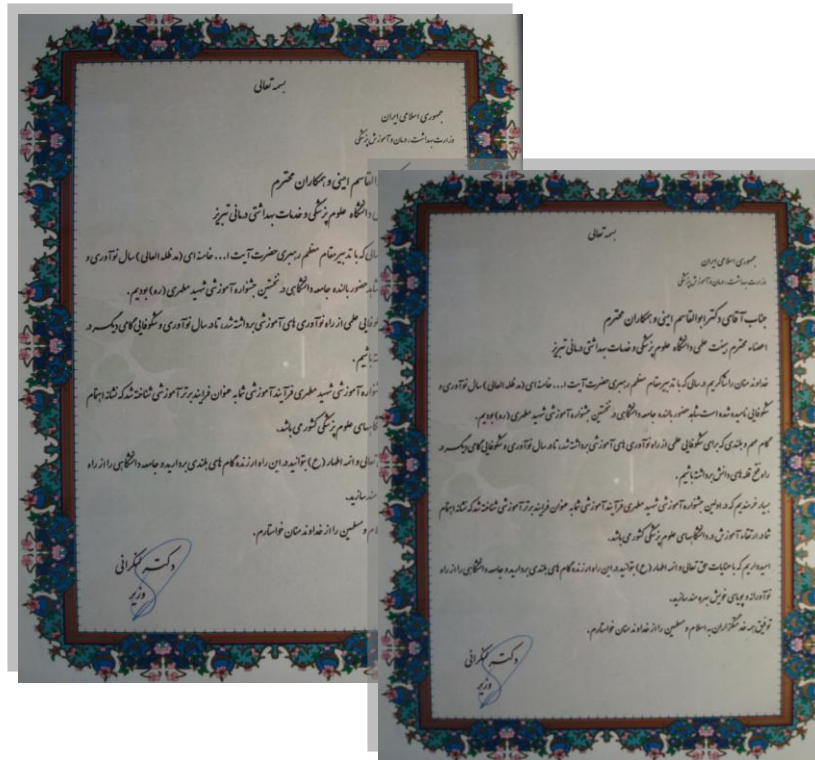 بسمه تعالی
جمهوری اسلامی ایران
وزارت بهداشت، درمان و آموزش پزشکی
القاسم امینی و همکاران محترم
دانشگاه علوم پزشکی و خدمات بهداشتی درمانی تبریز
سالی که با تدبیر مقام معظم رهبری حضرت آیت ا... خامنه ای (مد ظله العالی) سال نوآوری و
شاهد حضور بالنده جامعه دانشگاهی در نخستین جشنواره آموزشی شهید مطهری (ره) بودیم.
علمی از راه نوآوری های آموزشی برداشته شد، تا در سال نوآوری و شکوفایی گامی دیگر در
باشیم.
آموزشی شهید مطهری فرآیند آموزشی شما به عنوان فرایند برتر آموزشی شناخته شد که نشانه اهتمام
علوم پزشکی کشور می باشد.
تعالی و ائمه اطهار (ع) بتوانید در این راه ارزنده گام های بلندی بردارید و جامعه دانشگاهی را از راه
مند سازید.
و مسلمین را از خداوند منان خواستارم.
دکتر لنکرانی
وزیر
بسمه تعالی
جمهوری اسلامی ایران
وزارت بهداشت، درمان و آموزش پزشکی
جناب آقای دکتر ابوالقاسم امینی و همکاران محترم
اعضاء محترم هیئت علمی دانشگاه علوم پزشکی و خدمات بهداشتی درمانی تبریز
خداوند منان را شاکریم در سالی که با تدبیر مقام معظم رهبری حضرت آیت ا... خامنه ای (مد ظله العالی) سال نوآوری و
شکوفایی نامیده شده است شاهد حضور بالنده جامعه دانشگاهی در نخستین جشنواره آموزشی شهید مطهری (ره) بودیم.
گام مهم و بلندی که برای شکوفایی علمی از راه نوآوری های آموزشی برداشته شد، تا در سال نوآوری و شکوفایی گامی دیگر در
راه فتح قله های دانش برداشته باشیم.
بسیار خرسندیم که در اولین جشنواره آموزشی شهید مطهری فرآیند آموزشی شما به عنوان فرایند برتر آموزشی شناخته شد که نشانه اهتمام
شما در ارتقاء آموزش در دانشگاههای علوم پزشکی کشور می باشد.
امیدواریم که با عنایات حق تعالی و ائمه اطهار (ع) بتوانید در این راه ارزنده گام های بلندی بردارید و جامعه دانشگاهی را از راه
نوآورانه و پویای خویش بهره مند سازید.
توفیق همه خدمتگزاران به اسلام و مسلمین را از خداوند منان خواستارم.
دکتر لنکرانی
وزیر